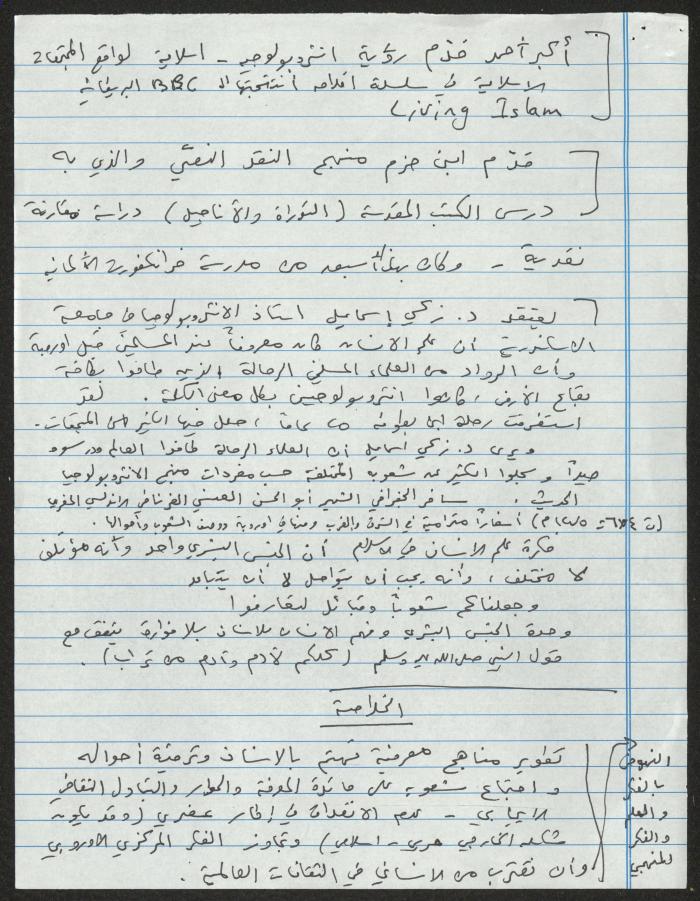 أكبر أحمد قدّم رؤية انثروبولوجية - اسلامية لواقع المجتمعات
الاسلامية في سلسلة أفلام أنتجتها الـ BBC البريطانية
Living Islam
قدّم ابن حزم منهج النقد النصّي والذي به
درس الكتب المقدسة (التوراة والأناجيل) دراسة مقارنة
نقدية - وكان بهذا أسبق من مدرسة فرانكفورت الألمانية
يعتقد د. زكي إسماعيل استاذ الانثروبولوجيا في جامعة
الاسكندرية أن علم الانسان كان معروفاً عند المسلمين قبل اوروبة
وأن الرواد من العلماء المسلمين الرحالة الذين طافوا بكافة
بقاع الأرض، كانوا انثروبولوجيين بكل معنى الكلمة. لقد
استغرقت رحلة ابن بطوطة عاماً، حلل فيها الكثير من المجتمعات.
ويرى د. زكي اسماعيل أن العلماء الرحالة طافوا العالم ودرسوه
جيداً وسجلوا الكثير عن شعوبه المختلفة حسب مفردات منهج الانثروبولوجيا
الحديث. سافر الجغرافي الشهير أبو الحسن الغرناطي الاندلسي المغربي
أسفاراً مترامية في الشرق والغرب ومنها في اوروبة ووصف الشعوب وأحوالها.
فكرة علم الانسان في الاسلام أن الجنس البشري واحد وأنه مؤتلف
لا مختلف، وأنه يجب أن يتواصل لا أن يتباعد
وجعلناكم شعوباً وقبائل لتعارفوا
وحدة الجنس البشري وفهم الانسان للانسان بلا فوارق يتفق مع
قول النبي صلى الله عليه وسلم (كلكم لآدم وآدم من تراب).
الخلاصة
تطوير مناهج معرفية تهتم بالانسان وترقية أحواله
واجتماع شعوبه على مائدة المعرفة والحوار والتبادل الثقافي
الايجابي - عدم الانغلاق في إطار عنصري (وقد يكون
شكله الخارجي عربي - اسلامي) وتجاوز الفكر المركزي الأوروبي
وأن نقترب من الانساني في الثقافات العالمية.
النهوض
بالفكر
والعلم
والفكر
المنهجي